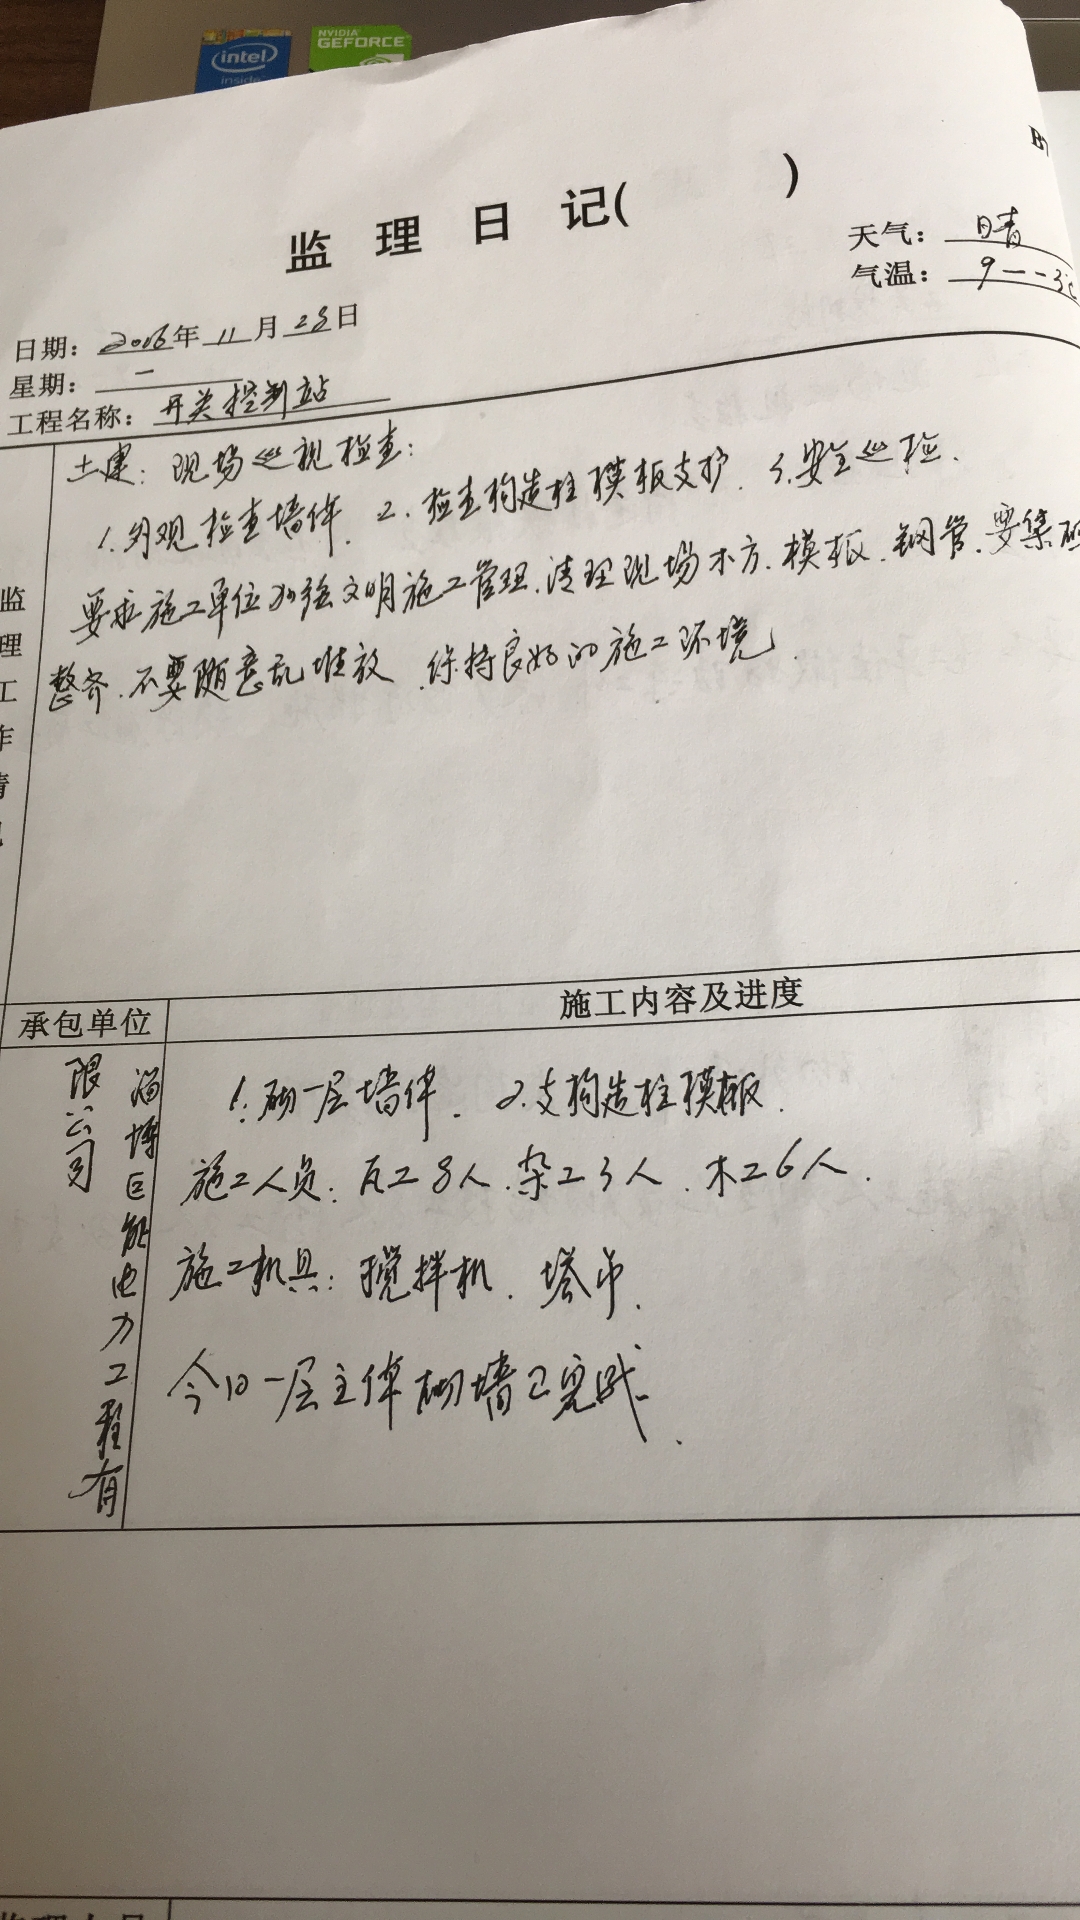 intel
inside
NVIDIA
GEFORCE
监 理 日 记( )
天气: 晴
气温: 9--3℃
日期: 2016年 11 月 28 日
星期: 一
工程名称: 开关控制站
监理工作情
土建: 现场巡视检查:
1.外观检查墙体. 2.检查构造柱模板支护. 3.安全巡检.
要求施工单位加强文明施工管理.清理现场木方.模板.钢管.要集码
整齐.不要随意乱堆放.保持良好的施工环境.
承包单位 施工内容及进度
淄博巨能电力工程有
限公司
1.砌一层墙体. 2.支构造柱模板.
施工人员: 瓦工8人.杂工3人.木工6人.
施工机具: 搅拌机. 塔吊.
今日一层主体砌墙已完成.